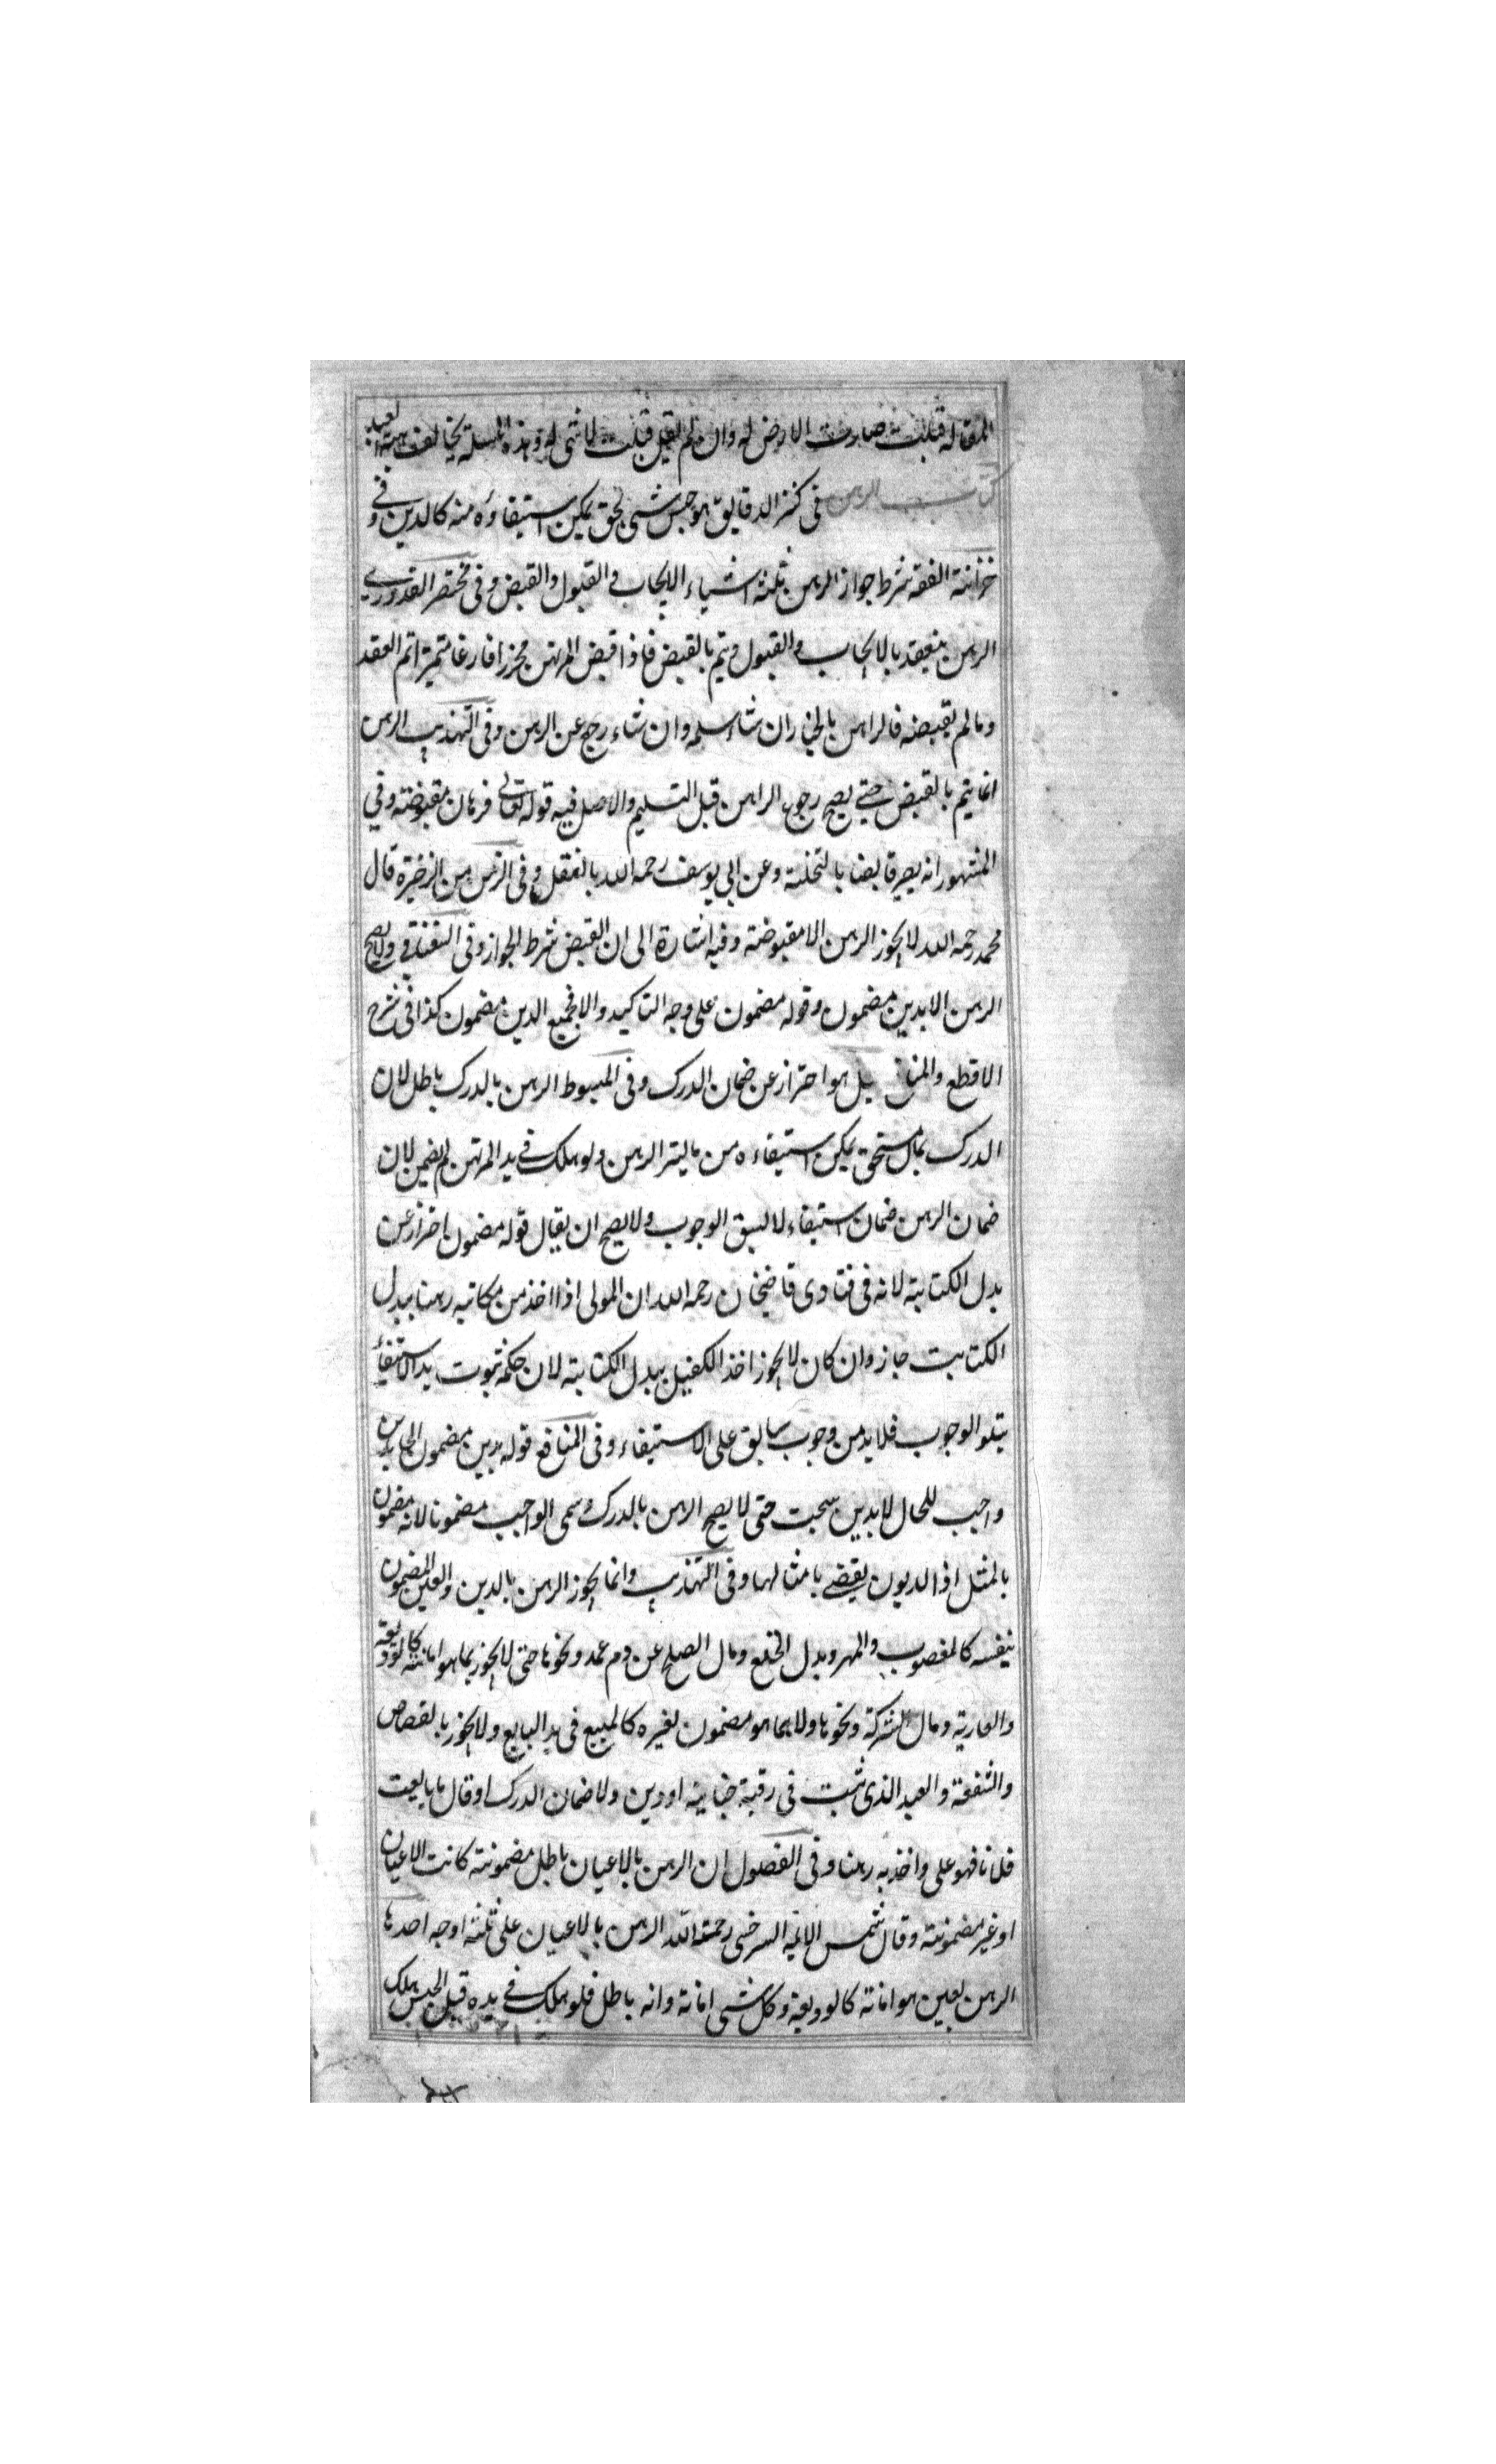 له قبلت صارت الارض له وان لم يقل قبلت لا شى له وهذه المسئلة يخالف هبة العبد
كتاب الرهن فى كنز الدقايق هو حبس شى بحق يمكن استيفاؤه منه كالدين وفى
خزانة الفقه شرط جواز الرهن ثلثة اشياء الايجاب والقبول والقبض وفى مختصر القدورى
الرهن ينعقد بالايجاب والقبول ويتم بالقبض فاذا قبض المرتهن محرزا فارغا متميزا تم العقد
ومالم يقبضه فالراهن بالخيار ان شاء سلمه وان شاء رجع عن الرهن وفى التهذيب الرهن
انما يتم بالقبض حتى يصح رجوع الراهن قبل التسليم والاصل فيه قوله تعالى فرهان مقبوضة وفي
المشهور انه يصير قابضا بالتخلية وعن ابي يوسف رحمه الله بالنقل وفى الرهن من الذخيرة قال
محمد رحمه الله لا يجوز الرهن الا مقبوضة وفيه اشارة الى ان القبض شرط الجواز وفى السغناقي ولا يصح
الرهن الا بدين مضمون وقوله مضمون على وجه التاكيد والا فجميع الدين مضمون كذا فى شرح
الاقطع والمنا بل هو احتراز عن ضمان الدرك وفى المبسوط الرهن بالدرك باطل لان
الدرك بمال مستحق يمكن استيفاءه من مالية الرهن ولو هلك فى يد المرتهن لم يضمن لان
ضمان الرهن ضمان استيفاء لا يسبق الوجوب ولا يصح ان يقال قوله مضمون احتراز عن
بدل الكتابة لانه فى فتاوى قاضيخان رحمه الله ان المولى اذا اخذ من مكاتبه رهنا ببدل
الكتابت جاز وان كان لا يجوز اخذ الكفيل ببدل الكتابة لان حكمه ثبوت يد الاستيفاء
يتلو الوجوب فلابد من وجوب سابق على الاستيفاء وفى المنافع قوله بدين مضمون اى بدين
واجب للحال لا بدين سيجب حتى لا يصح الرهن بالدرك وسمى الواجب مضمونا لانه مضمون
بالمثل اذ الديون يقضى بامثالها وفى التهذيب وانما يجوز الرهن بالدين والعين المضمون
بنفسه كالمغصوب والمهر وبدل الخلع ومال الصلح عن دم عمد ونحوها حتى لا يجوز بما هو امانة كالوديعة
والعارية ومال الشركة ونحوها ولا بما هو مضمون لغيره كالمبيع فى يد البايع ولا يجوز بالقصاص
والشفعة والعبد الذى ثبت فى رقبة جناية او دين ولا ضمان الدرك او قال ما بايعت
فلانا فهو على واخذ به رهنا وفى الفصول ان الرهن بالاعيان باطل مضمونة كانت الاعيان
او غير مضمونة وقال شمس الائمة السرخسى رحمة الله الرهن بالاعيان على ثلثة اوجه احدها
الرهن بعين هو امانة كالوديعة وكل شى امانة وانه باطل فلو هلك فى يده قبل الحبس هلك